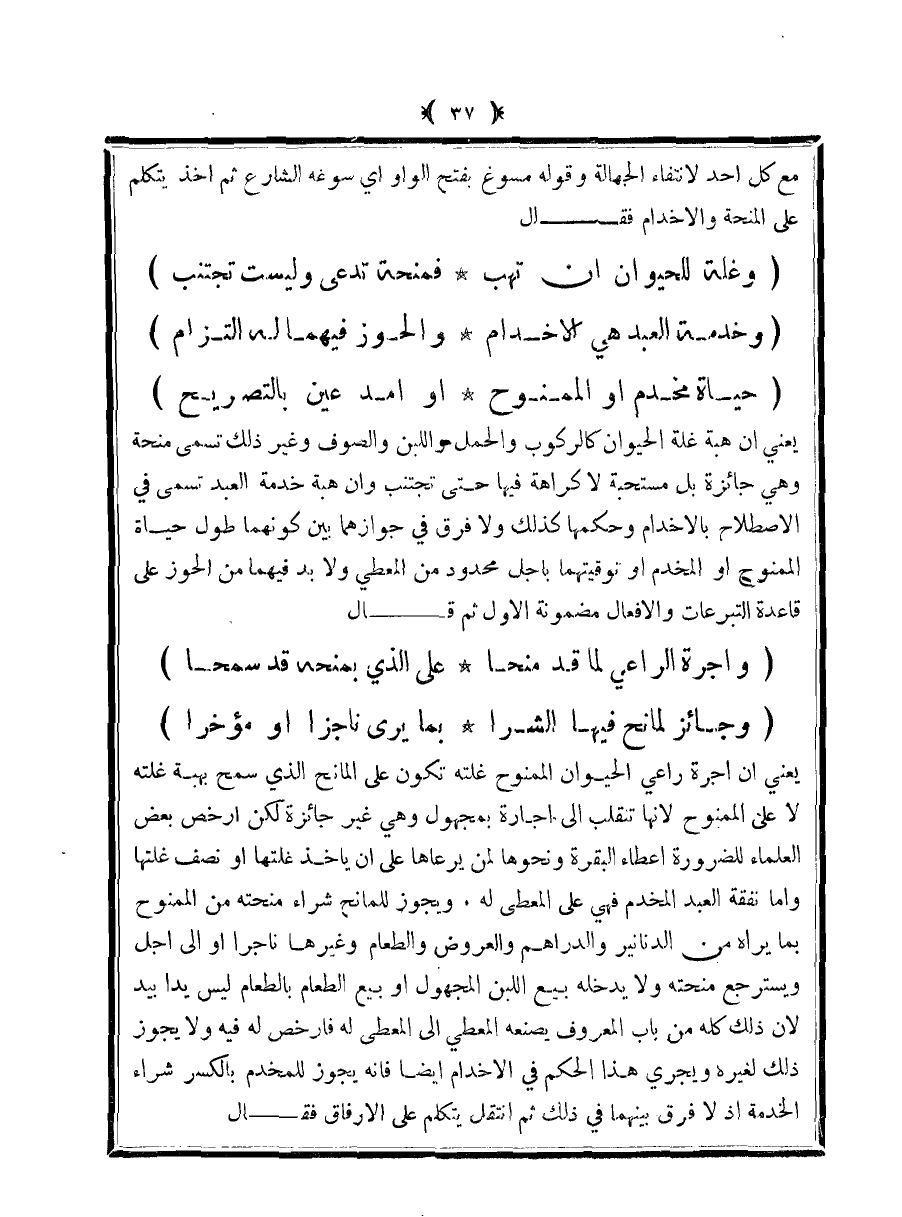 ( ٣٧ )
مع كل احد لانتفاء الجهالة وقوله مسوغ بفتح الواو اي سوغه الشارع ثم اخذ يتكلم
على المنحة والاخدام فقـــــــال
( وغلة للحيوان ان تهب * فمنحة تدعى وليست تجتنب )
( وخدمـة العبد هي الاخـدام * والحـوز فيهمـا لـه التـزام )
( حيـاة مخـدم او الممـنـوح * او امـد عين بالتصريـح )
يعني ان هبة غلة الحيوان كالركوب والحمل واللبن والصوف وغير ذلك تسمى منحة
وهي جائزة بل مستحبة لا كراهة فيها حـتى تجتنب وان هبة خدمة العبد تسمى في
الاصطلاح بالاخدام وحكمها كذلك ولا فرق في جوازهما بين كونهما طول حيـاة
الممنوح او المخدم او توقيتهما باجل محدود من المعطي ولا بد فيهما من الحوز على
قاعدة التبرعات والافعال مضمونة الاول ثم قـــــــال
( واجرة الراعي لما قـد منحـا * على الذي بمنحه قد سمحـا )
( وجـائز لمانح فيهـا الشـرا * بما يرى ناجزا او مؤخرا )
يعني ان اجرة راعي الحيـوان الممنوح غلته تكون على المانح الذي سمح بهبـة غلته
لا على الممنوح لانها تنقلب الى اجـارة بمجهول وهي غير جائزة لكن ارخص بعض
العلماء للضرورة اعطاء البقرة ونحوها لمن يرعاها على ان ياخـذ غلتها او نصف غلتها
واما نفقة العبد المخدم فهي على المعطى له ٠ ويجوز للمانح شراء منحته من الممنوح
بما يراه من الدنانير والدراهـم والعروض والطعام وغيرهـا ناجرا او الى اجل
ويسترجع منحته ولا يدخله بيـع اللبن المجهول او بيع الطعام بالطعام ليس يدا بيد
لان ذلك كله من باب المعروف يصنعه المعطي الى المعطى له فارخص له فيه ولا يجوز
ذلك لغيره ويجري هـذا الحكم في الاخدام ايضـا فانه يجوز للمخدم بالكسر شراء
الخدمة اذ لا فرق بينهما في ذلك ثم انتقل يتكلم على الارفاق فقـــــال